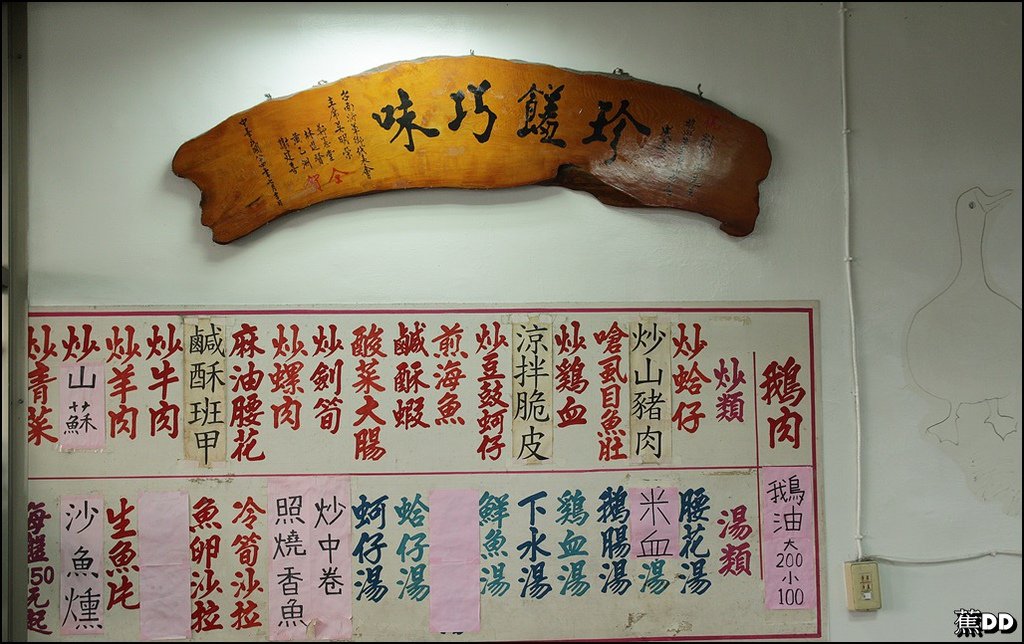 珍饈巧味
台南沂羊鄉代表會
全
賀
鵝肉
鵝油大200小100
炒類
炒蛤仔
炒山豬肉
嗆虱目魚肚
炒鷄血
涼拌脆皮
炒豆鼓蚵仔
煎海魚
鹹酥蝦
酸菜大腸
炒劍筍
炒螺肉
麻油腰花
鹹酥班甲
炒牛肉
炒羊肉
炒山蘇
炒青菜
湯類
腰花湯
米血湯
鵝腸湯
鷄血湯
下水湯
鮮魚湯
蛤仔湯
蚵仔湯
炒中卷
照燒香魚
冷筍沙拉
魚卵沙拉
生魚片
沙魚燻
每盤50元起
蕉DD